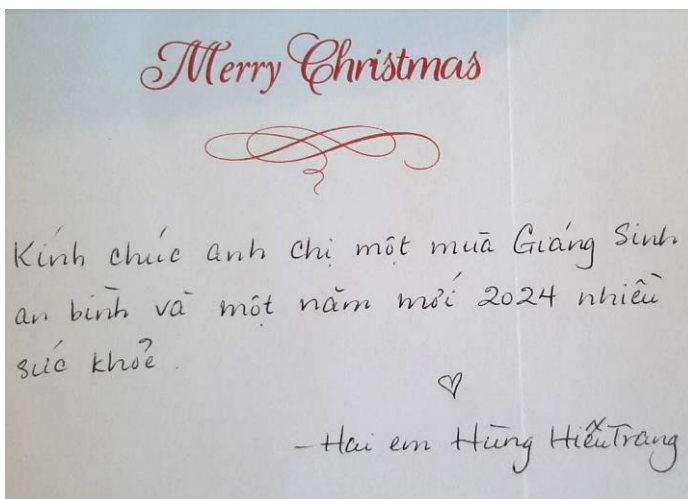 Merry Christmas
Kính chúc anh chị một mùa Giáng Sinh
an bình và một năm mới 2024 nhiều
sức khoẻ.
♡
- Hai em Hùng HiếuTrang